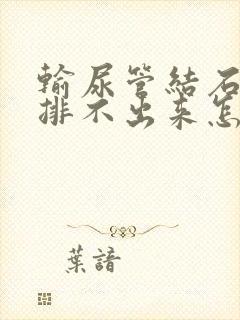 輸尿管結石
排不出来怎
葉諳